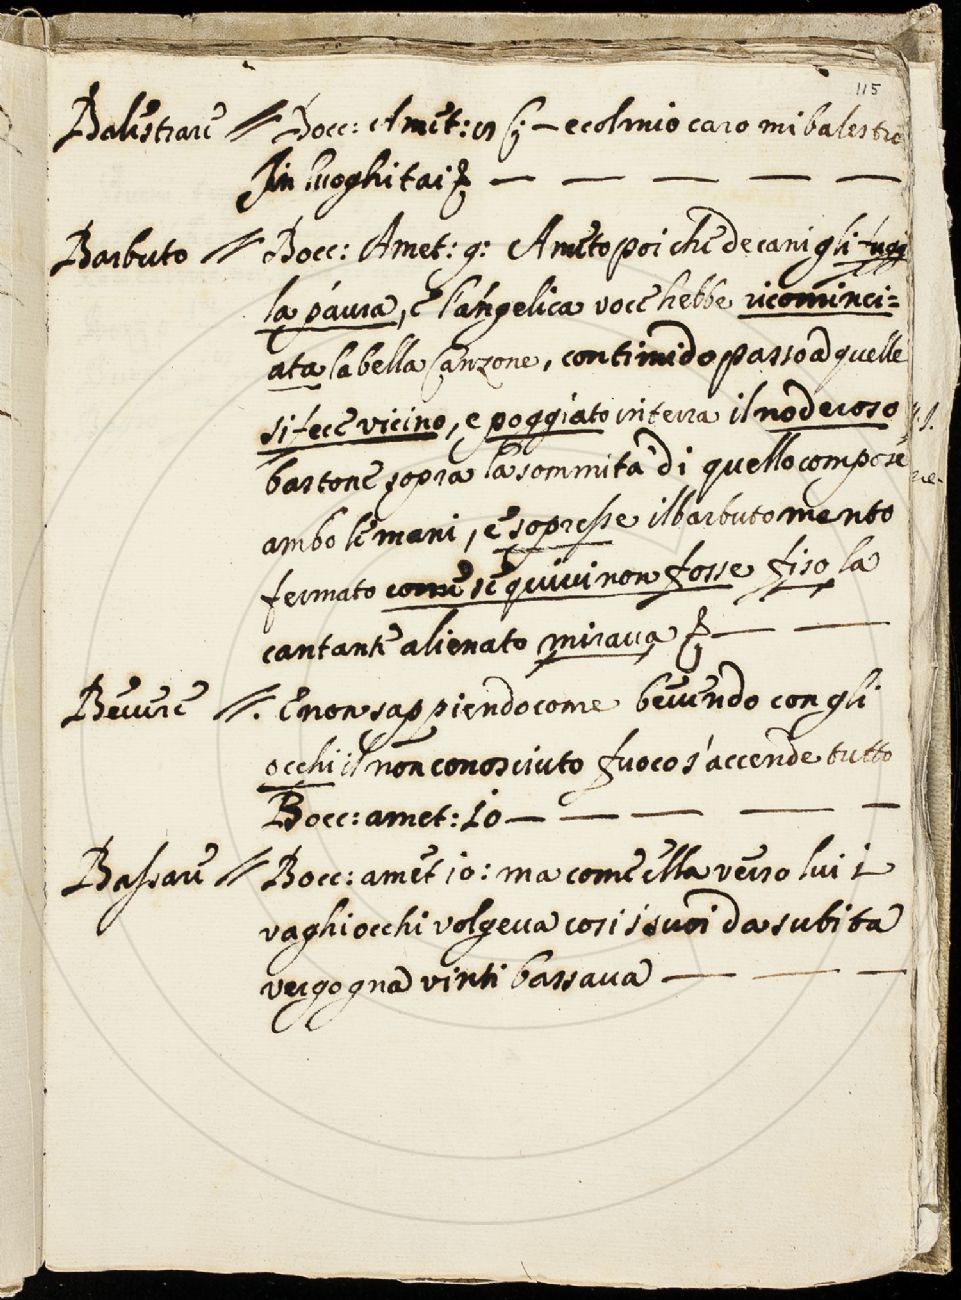 115
Balestrare // Bocc: Amet: — e col mio caro mi balestra
In luoghi tai — — — — —
Barbuto // Bocc: Amet: 9: Ameto poi che de cani gli fuggi
la paura, e l'angelica voce hebbe ricominci=
ata la bella Canzone, con timido passo a quelle
si fece vicino, e poggiato in terra il noderoso
bastone sopra la sommità di quello compose
ambo le mani, e sopresse il barbuto mento
fermato come se quivi non fosse fiso la
cantante alienato mirava — —
Bevere //. E non sappiendo come bevendo con gli
occhi il non conosciuto fuoco s'accende tutto
Bocc: amet: 10 — — — — —
Bassare // Bocc: amet 10: ma come ella verso lui i
vaghi occhi volgeva cosi i suoi da subita
vergogna vinti bassava — — —